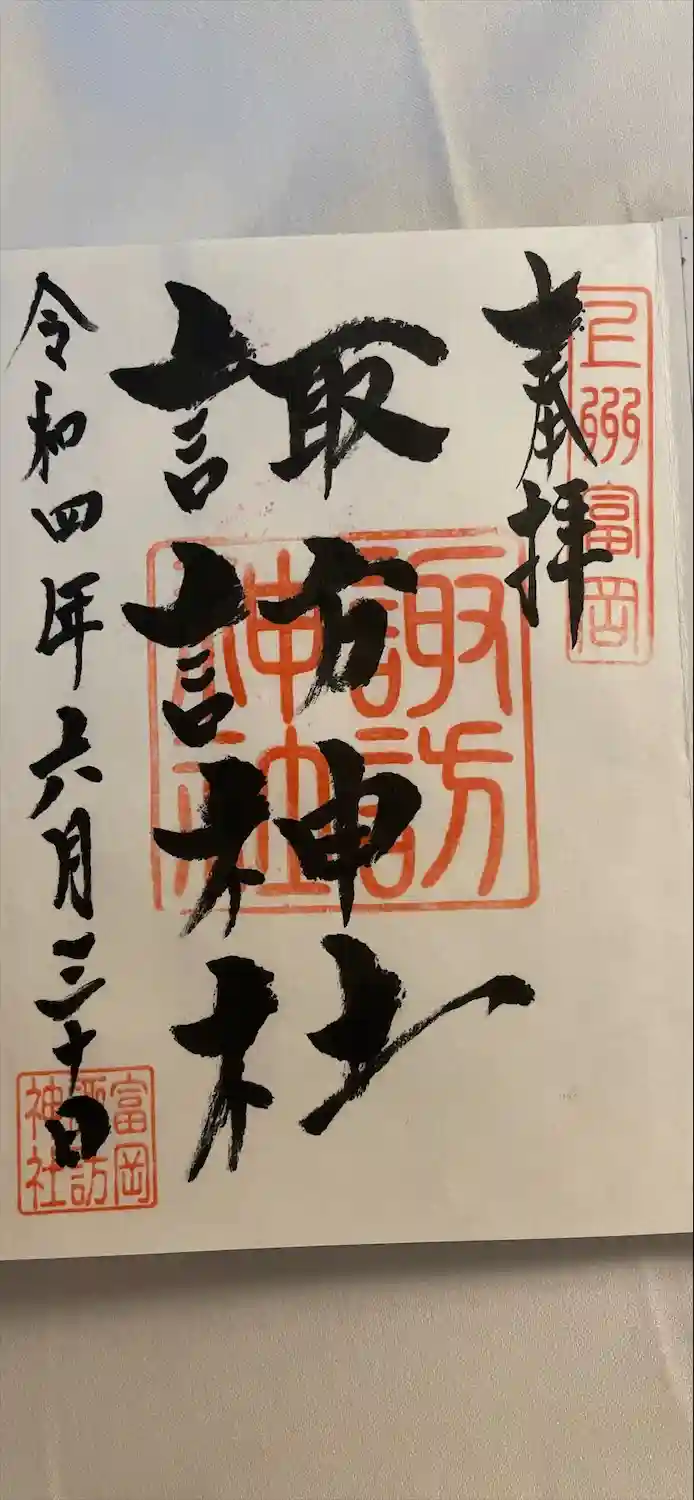 奉拝
上州富岡
諏訪神社
諏訪神社
令和四年六月三十日
富岡
諏訪
神社